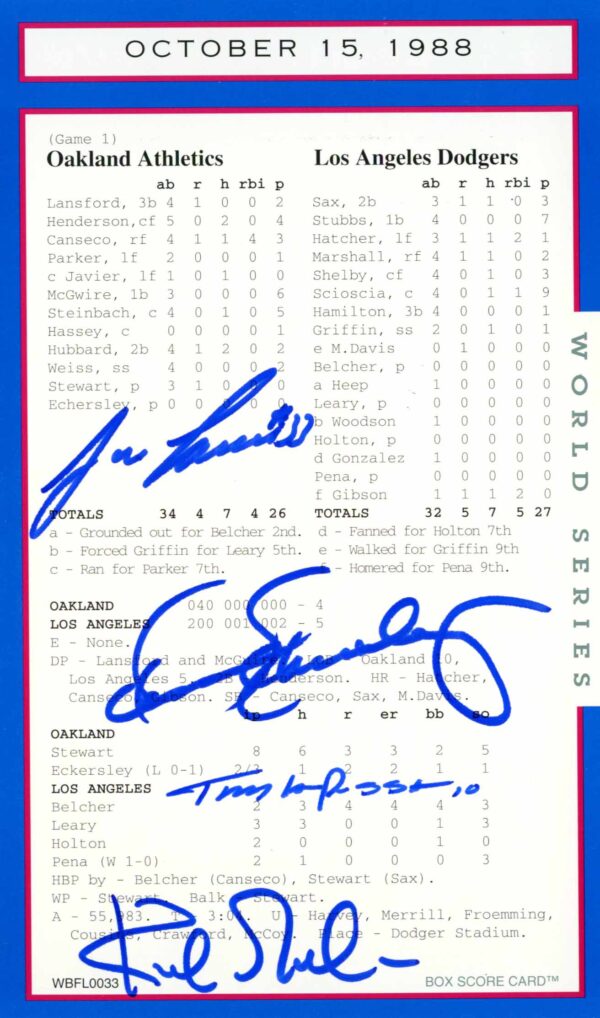 OCTOBER 15, 1988
(Game 1)
Oakland Athletics
ab r h rbi p
Lansford, 3b 4 1 0 0 2
Henderson,cf 5 0 2 0 4
Canseco, rf 4 1 1 4 3
Parker, lf 2 0 0 0 1
c Javier, lf 1 0 1 0 0
McGwire, 1b 3 0 0 0 6
Steinbach, c 4 0 1 0 5
Hassey, c 0 0 0 0 1
Hubbard, 2b 4 1 2 0 2
Weiss, ss 4 0 0 0 2
Stewart, p 3 1 0 0 0
Echersley, p 0 0 0 0 0
TOTALS 34 4 7 4 26
Los Angeles Dodgers
ab r h rbi p
Sax, 2b 3 1 1 0 3
Stubbs, 1b 4 0 0 0 7
Hatcher, lf 3 1 1 2 1
Marshall, rf 4 1 1 0 2
Shelby, cf 4 0 1 0 3
Scioscia, c 4 0 1 1 9
Hamilton, 3b 4 0 0 0 1
Griffin, ss 2 0 1 0 1
e M.Davis 0 1 0 0 0
Belcher, p 0 0 0 0 0
a Heep 1 0 0 0 0
Leary, p 0 0 0 0 0
b Woodson 1 0 0 0 0
Holton, p 0 0 0 0 0
d Gonzalez 1 0 0 0 0
Pena, p 0 0 0 0 0
f Gibson 1 1 1 2 0
TOTALS 32 5 7 5 27
a - Grounded out for Belcher 2nd.
b - Forced Griffin for Leary 5th.
c - Ran for Parker 7th.
d - Fanned for Holton 7th
e - Walked for Griffin 9th
f - Homered for Pena 9th.
OAKLAND 040 000 000 - 4
LOS ANGELES 200 001 002 - 5
E - None.
DP - Lansford and McGwire. LOB - Oakland 10,
Los Angeles 5. 2B - Henderson. HR - Hatcher,
Canseco, Gibson. SB - Canseco, Sax, M.Davis.
ip h r er bb so
OAKLAND
Stewart 8 6 3 3 2 5
Eckersley (L 0-1) 2/3 1 2 2 1 1
LOS ANGELES
Tony LaRussa 10
Belcher 2 3 4 4 4 3
Leary 3 3 0 0 1 3
Holton 2 0 0 0 1 0
Pena (W 1-0) 2 1 0 0 0 3
HBP by - Belcher (Canseco), Stewart (Sax).
WP - Stewart. Balk - Stewart.
A - 55,983. T - 3:04. U - Harvey, Merrill, Froemming,
Cousins, Crawford, McCoy. Place - Dodger Stadium.
WBFL0033
BOX SCORE CARD™
WORLD SERIES